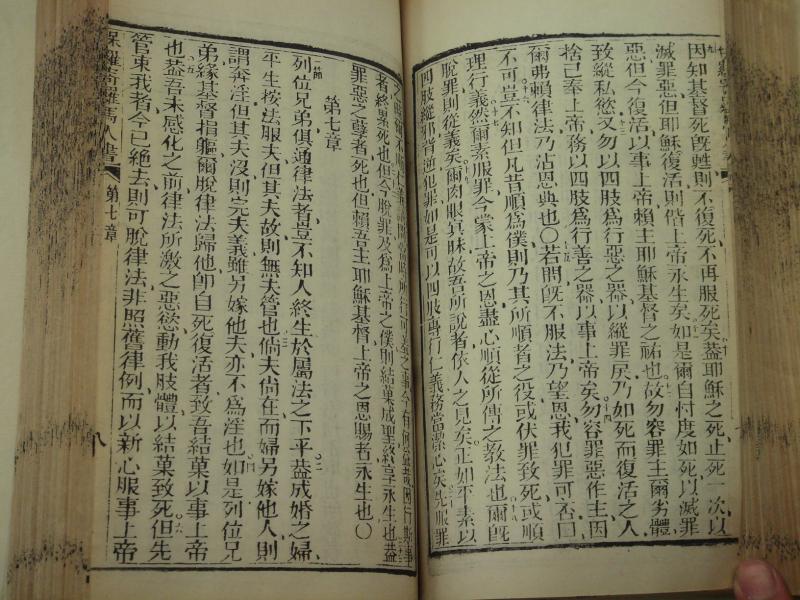 因知基督死旣甦則不復死不再服死矣葢耶穌之死止死一次以
滅罪惡但耶穌復活則偕上帝永生矣如是爾自忖度如死以滅罪
惡但今復活以事上帝賴主耶穌基督之祐也故勿容罪王爾劣體
致縱私慾又勿以四肢爲行惡之器以縱罪戾乃如死而復活之人
捨己奉上帝務以四肢爲行善之器以事上帝矣勿容罪惡作主因
爾弗賴律法乃沾恩典也〇若問旣不服法乃望恩我犯罪可否曰
不可豈不知但凡甘順爲僕則乃其所順者之役或伏罪致死或順
理行義然爾素服罪今蒙上帝之恩盡心順從所傳之敎法也爾旣
脫罪則從義矣爾肉眼眞昧故吾所說者依人之見矣正如平素以
四肢縱邪背逆犯罪如是可以四肢專行仁義務當潔心矣先服罪
者終累死也但今脫罪及爲上帝之僕則結菓成聖終享永生也葢
罪惡之孽者死也但賴吾主耶穌基督上帝之恩賜者永生也〇
第七章
一節
列位兄弟俱通律法者豈不知人終生於屬法之下乎葢成婚之婦
平生按法服夫但其夫故則無夫管也倘夫尙在而婦另嫁他人則
謂奔淫但其夫沒則完夫義雖另嫁他夫亦不爲淫也如是列位兄
弟緣基督指軀爾脫律法歸他卽自死復活者致吾結菓以事上帝
也葢吾未感化之前律法所激之惡慾動我肢體以結菓致死但先
管束我者今已絕去則可脫律法非照舊律例而以新心服事上帝
保羅寄羅馬人書
第七章
八